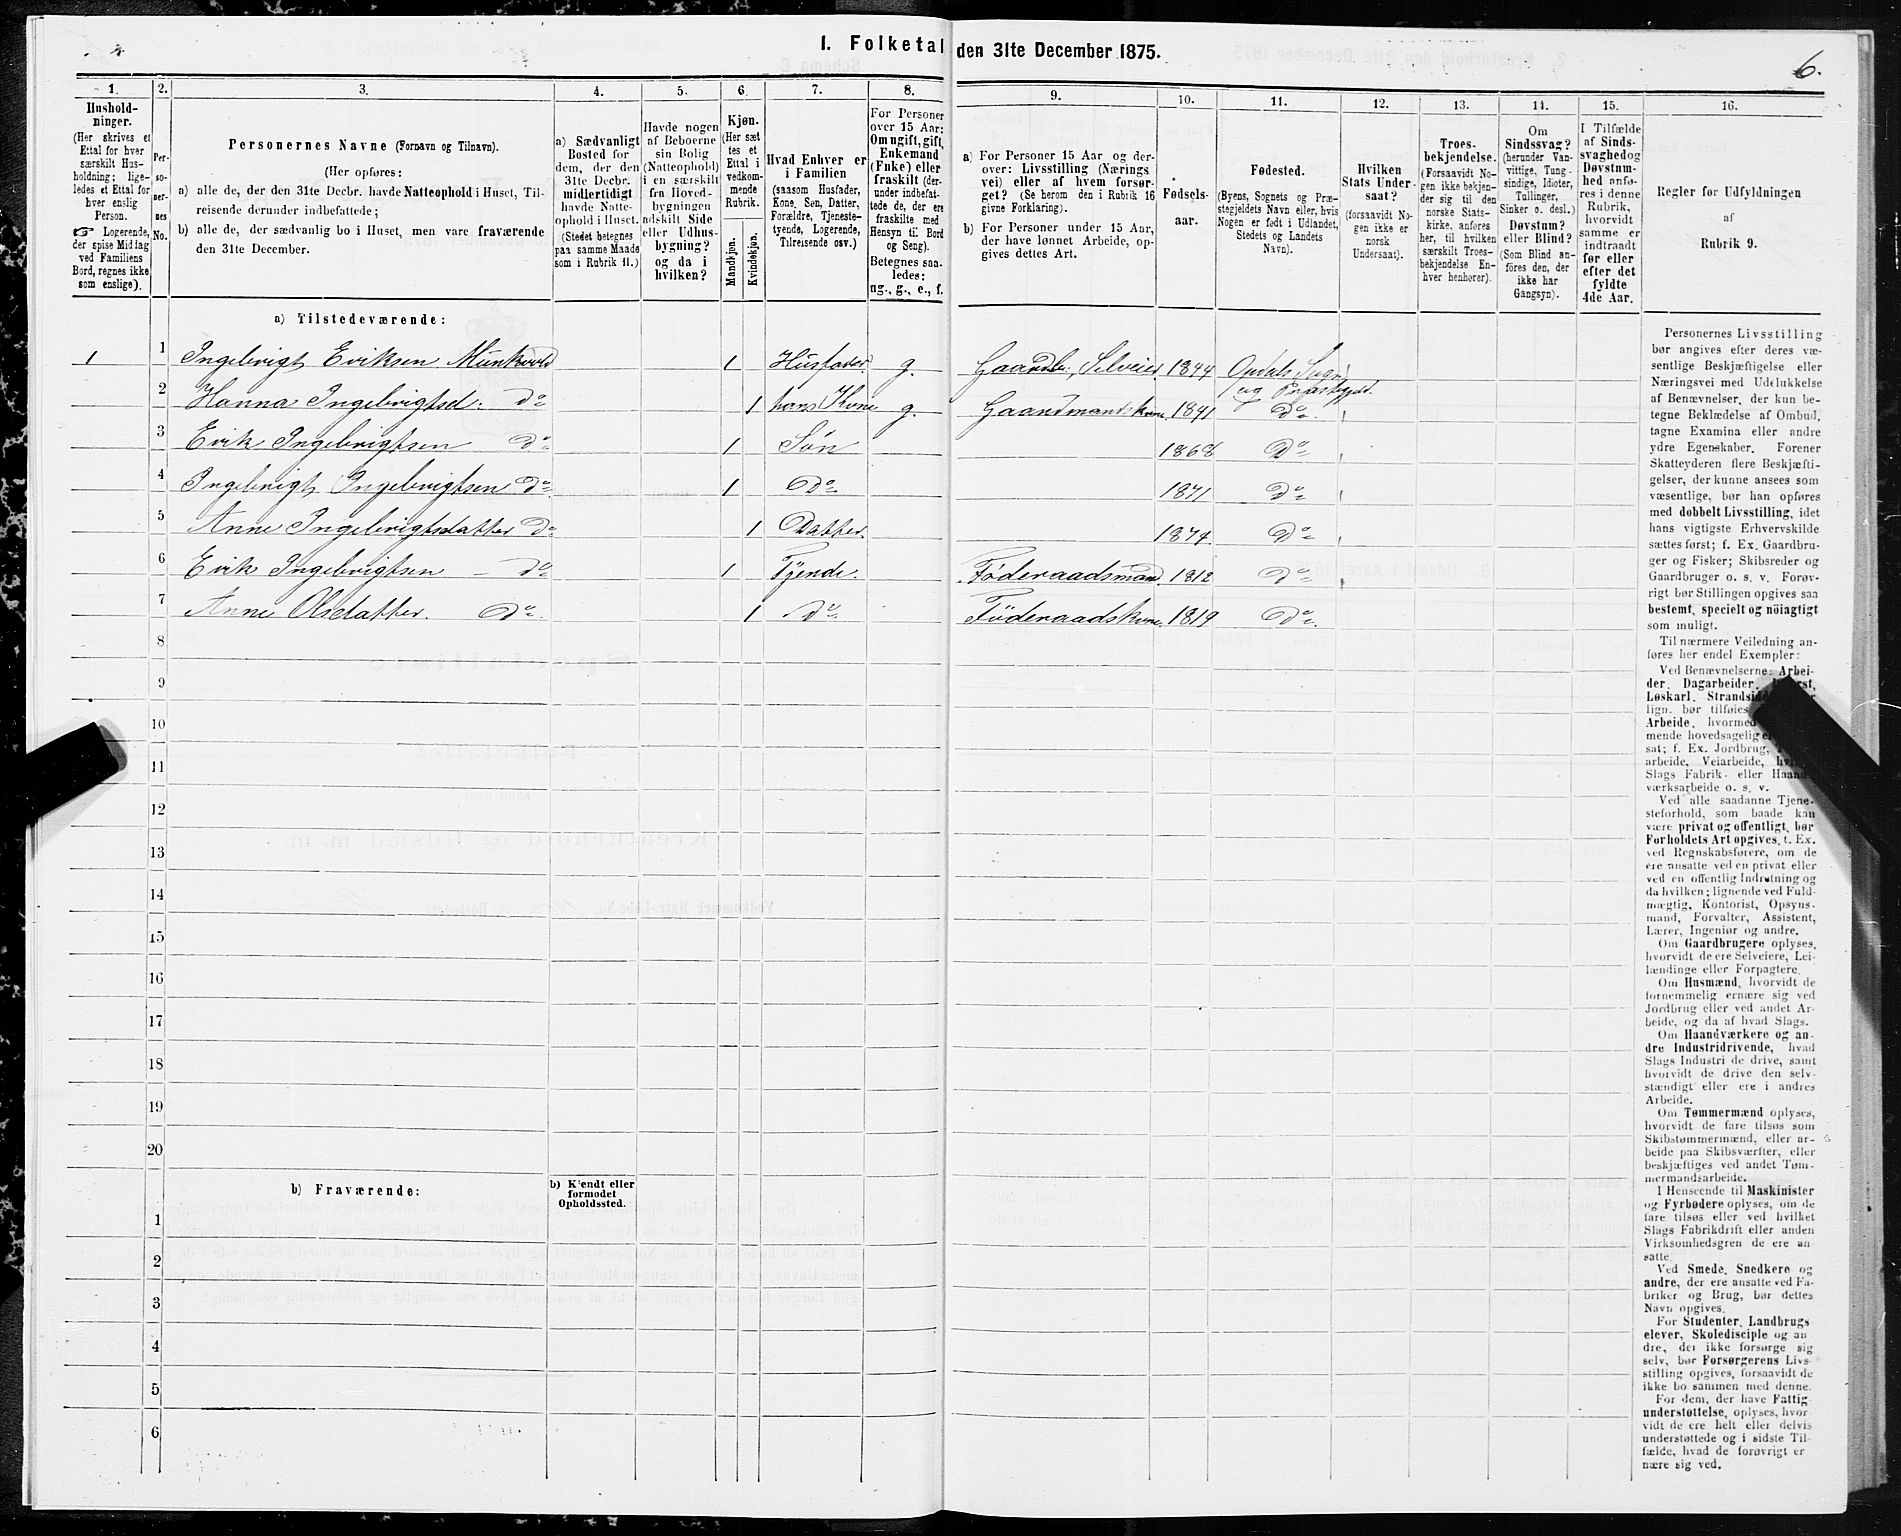 1. Folketal den 31te December 1875.
6.
1.
Hushold-
ninger.
(Her skrives et
Ettal for hver
særskilt Hus-
holdning; lige-
ledes et Ettal for
hver enslig
Person.
☞ Logerende,
der spise Middag
ved Familiens
Bord, regnes ikke
som enslige).
2.
Per-
so-
ner-
nes
No.
3.
Personernes Navne (Fornavn og Tilnavn).
(Her opføres:
a) alle de, der den 31te Decbr. havde Natteophold i Huset, Til-
reisende derunder indbefattede;
b) alle de, der sædvanlig bo i Huset, men vare fraværende
den 31te December.
4.
a) Sædvanligt
Bosted for
dem, der den
31te Decbr.
midlertidigt
havde Natte-
ophold i Huset.
(Stedet betegnes
paa samme Maade
som i Rubrik 11.)
5.
Havde nogen
af Beboerne
sin Bolig
(Natteophold)
i en særskilt
fra Hoved-
bygningen
adskilt Side
eller Udhus-
bygning?
og da i
hvilken?
6.
Kjøn.
(Her sæt
tes et
Ettal i
vedkom-
mende
Rubrik.
Mandkjøn.
Kvindekjøn.
7.
Hvad Enhver er
i Familien
(saasom Husfader,
Kone, Søn, Datter,
Forældre, Tjeneste-
tyende, Logerende,
Tilreisende osv.)
8.
For Personer
over 15 Aar:
Om ugift, gift,
Enkemand
(Enke) eller
fraskilt (der-
under indbefat-
tede de, der ere
fraskilte med
Hensyn til Bord
og Seng).
Betegnes saa-
ledes:
ug., g., e., f.
9.
a) For Personer 15 Aar og der-
over: Livsstilling (Nærings
vei) eller af hvem forsør-
get? (Se herom den i Rubrik 16
givne Forklaring).
b) For Personer under 15 Aar,
der have lønnet Arbeide, op-
gives dettes Art.
10.
Fødsels-
aar.
11.
Fødested.
(Byens, Sognets og Præ-
stegjeldets Navn eller, hvis
Nogen er født i Udlandet,
Stedets og Landets
Navn).
12.
Hvilken
Stats Under-
saat?
(forsaavidt No-
gen ikke er
norsk
Undersaat).
13.
Troes-
bekjendelse.
(Forsaavidt No-
gen ikke bekjen-
der sig til den
norske Stats-
kirke, anføres
her, til hvilken
særskilt Troes-
bekjendelse En-
hver henhører).
14.
Om
Sindssvag?
(herunder Van-
vittige, Tung-
sindige, Idioter,
Tullinger,
Sinker o. desl.)
Døvstum?
eller Blind?
(Som Blind an-
føres den, der
ikke har
Gangsyn).
15.
I Tilfælde
af Sinds-
svaghed og
Døvstum-
hed anfø-
res i denne
Rubrik,
hvorvidt
samme er
indtraadt
før eller
efter det
fyldte
4de Aar.
16.
Regler for Udfyldningen
af
Rubrik 9.
a) Tilstedeværende:
1 1 Ingebrigt Eriksen Munkvold 1 Husfader g. Gaardb., Selveier. 1844 Opdals Sogn
og Præstegjeld.
2 Hanna Ingebrigtsd: Do 1 hans Kone g. Gaardmandskone 1841 Do.
3 Erik Ingebrigtsen Do 1 Søn 1868 Do
4 Ingebrigt Ingebrigtsen Do 1 Do 1871 Do
5 Anne Ingebrigtsdatter Do 1 Datter. 1874. Do
6 Erik Ingebrigtsen Do 1 Tyende. Føderaadsmand. 1812 Do
7 Anne Olsdatter. Do. 1 Do Føderaadskone. 1819 Do.
8
9
10
11
12
13
14
15
16
17
18
19
20
b) Fraværende:
b) Kjendt eller
formodet
Opholdssted.
1
2
3
4
5
6
Personernes Livsstilling
bør angives efter deres væ-
sentlige Beskjæftigelse eller
Næringsvei med Udelukkelse
af Benævnelser, der kun be-
tegne Beklædelse af Ombud,
tagne Examina eller andre
ydre Egenskaber. Forener
Skatteyderen flere Beskjæfti-
gelser, der kunne ansees som
væsentlige, bør han opføres
med dobbelt Livsstilling, idet
hans vigtigste Erhvervskilde
sættes først; f. Ex. Gaardbru-
ger og Fisker; Skibsreder og
Gaardbruger o. s. v. Forøv-
rigt bør Stillingen opgives saa
bestemt, specielt og nöiagtigt
som muligt.
Til nærmere Veiledning an-
føres her endel Exempler:
Ved Benævnelserne: Arbei-
der, Dagarbeider,
Løskarl, Strandsid
lign. bør tilføies
Arbeide, hvormed
mende hovedsagelig er
sat; f. Ex. Jordbrug,
arbeide, Veiarbeide,
Slags Fabrik- eller Haand-
værksarbeide o. s. v.
Ved alle saadanne Tjene-
steforhold, som baade kan
være privat og offentligt, bør
Forholdets Art opgives, t. Ex.
ved Regnskabsførere, om de
ere ansatte ved en privat eller
ved en offentlig Indretning og
da hvilken; lignende ved Fuld-
mægtig, Kontorist, Opsyns-
mand, Forvalter, Assistent,
Lærer, Ingeniør og andre.
Om Gaardbrugere oplyses,
hvorvidt de ere Selveiere, Lei-
lændinge eller Forpagtere.
Om Husmænd, hvorvidt de
fornemmelig ernære sig ved
Jordbrug eller ved andet Ar-
beide, og da af hvad Slags.
Om Haandværkere og an-
dre Industridrivende, hvad
Slags Industri de drive, samt
hvorvidt de drive den selv-
stændigt eller ere i andres
Arbeide.
Om Tømmermænd oplyses,
hvorvidt de fare tilsøs som
Skibstømmermænd, eller ar-
beide paa Skibsværfter, eller
beskjæftiges ved andet Tøm-
mermandsarbeide.
I Henseende til Maskinister
og Fyrbødere oplyses, om de
fare tilsøs eller ved hvilket
Slags Fabrikdrift eller anden
Virksomhedsgren de ere an-
satte.
Ved Smede, Snedkere og
andre, der ere ansatte ved Fa-
briker og Brug, bør dettes
Navn opgives.
For Studenter, Landbrugs
elever, Skoledisciple og an-
dre, der ikke forsørge sig
selv, bør Forsørgerens Livs-
stilling opgives, forsaavidt de
ikke bo sammen med denne.
For dem, der have Fattig-
understøttelse, oplyses, hvor-
vidt de ere helt eller delvis
understøttede og i sidste Til-
fælde, hvad de forøvrigt er
nære sig ved.